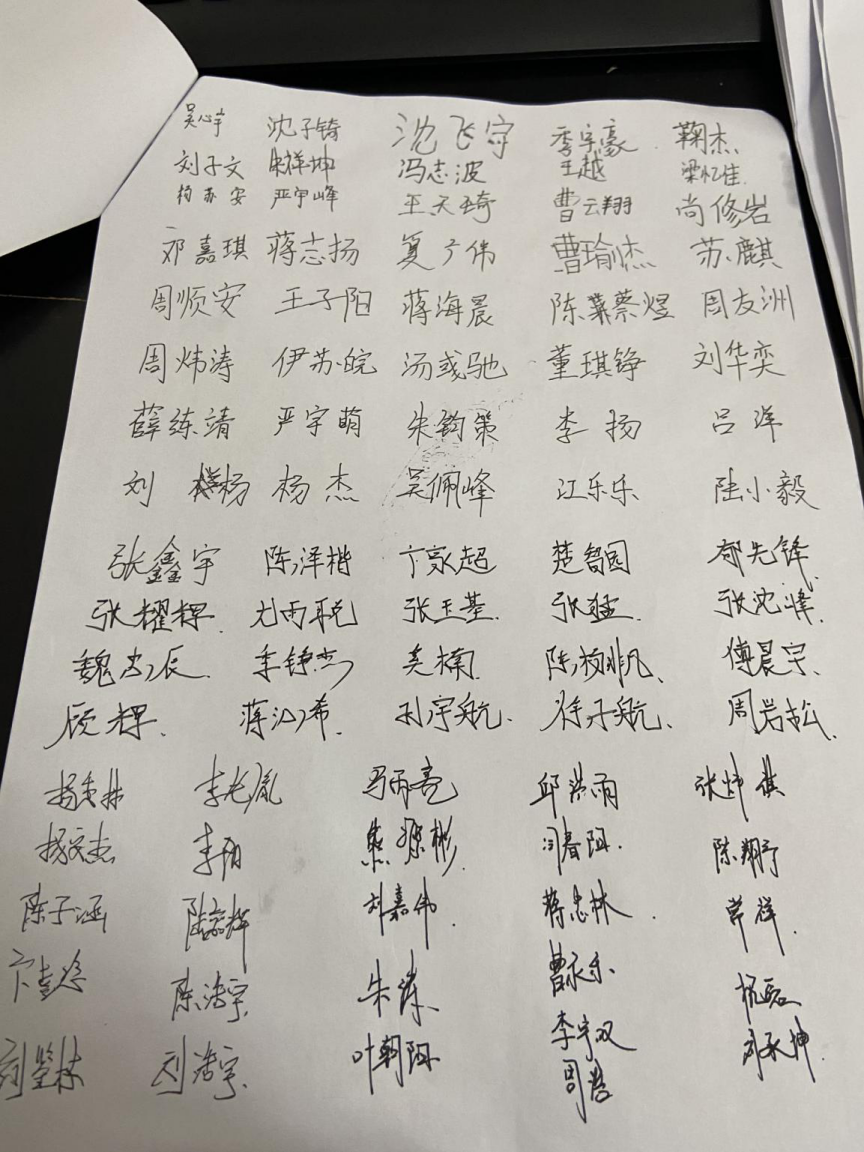 吴心宇 沈子锜 沈飞宇 季宇豪 鞠杰
刘子文 朱祥坤 冯志波 王越 梁忆佳
杨苏安 严宇峰 王天琦 曹云翔 尚修岩
邓嘉琪 蒋志扬 夏广伟 曹瑜杰 苏麒
周顺安 王子阳 蒋海晨 陈蔡煜 周友洲
周炜涛 伊苏皖 汤彧驰 董琪铮 刘华奕
薛练靖 严宇萌 朱钧策 李扬 吕洋
刘杨 杨杰 吴佩峰 江乐乐 陆小毅
张鑫宇 陈泽楷 卞家超 楚智园 郁先锋
张耀辉 尤雨聪 张王基 张猛 张沈峰
魏 季铮杰 吴楠 陈杨非凡 傅晨宇
顾辉 蒋希 孙宇航 徐子航 周岩松
李 马丙亮 邱洪雨 张炜棋
杨文杰 李 熊彬 闫春阳 陈翔宇
陈子涵 陆辉 刘嘉伟 蒋忠林 祥
卞 陈浩宇 朱 曹永乐 杭磊
刘林 刘浩宇 叶朝阳 李宇双 坤
周